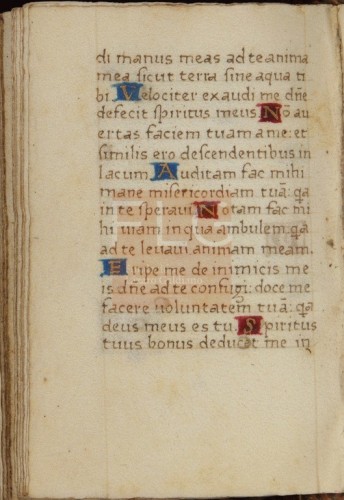 di manus meas ad te anima
mea sicut terra sine aqua ti
bi Velociter exaudi me dn̄e
defecit spiritus meus Nō au
ertas faciem tuam a me: et
similis ero descendentibus in
lacum Auditam fac mihi
mane misericordiam tuā: qa
in te speravi Notam fac mi
hi viam in qua ambulem: qa
ad te levavi animam meam.
Eripe me de inimicis me
is dn̄e ad te confugi: doce me
facere voluntatem tuā: qa
deus meus es tu. Spiritus
tuus bonus deducet me in